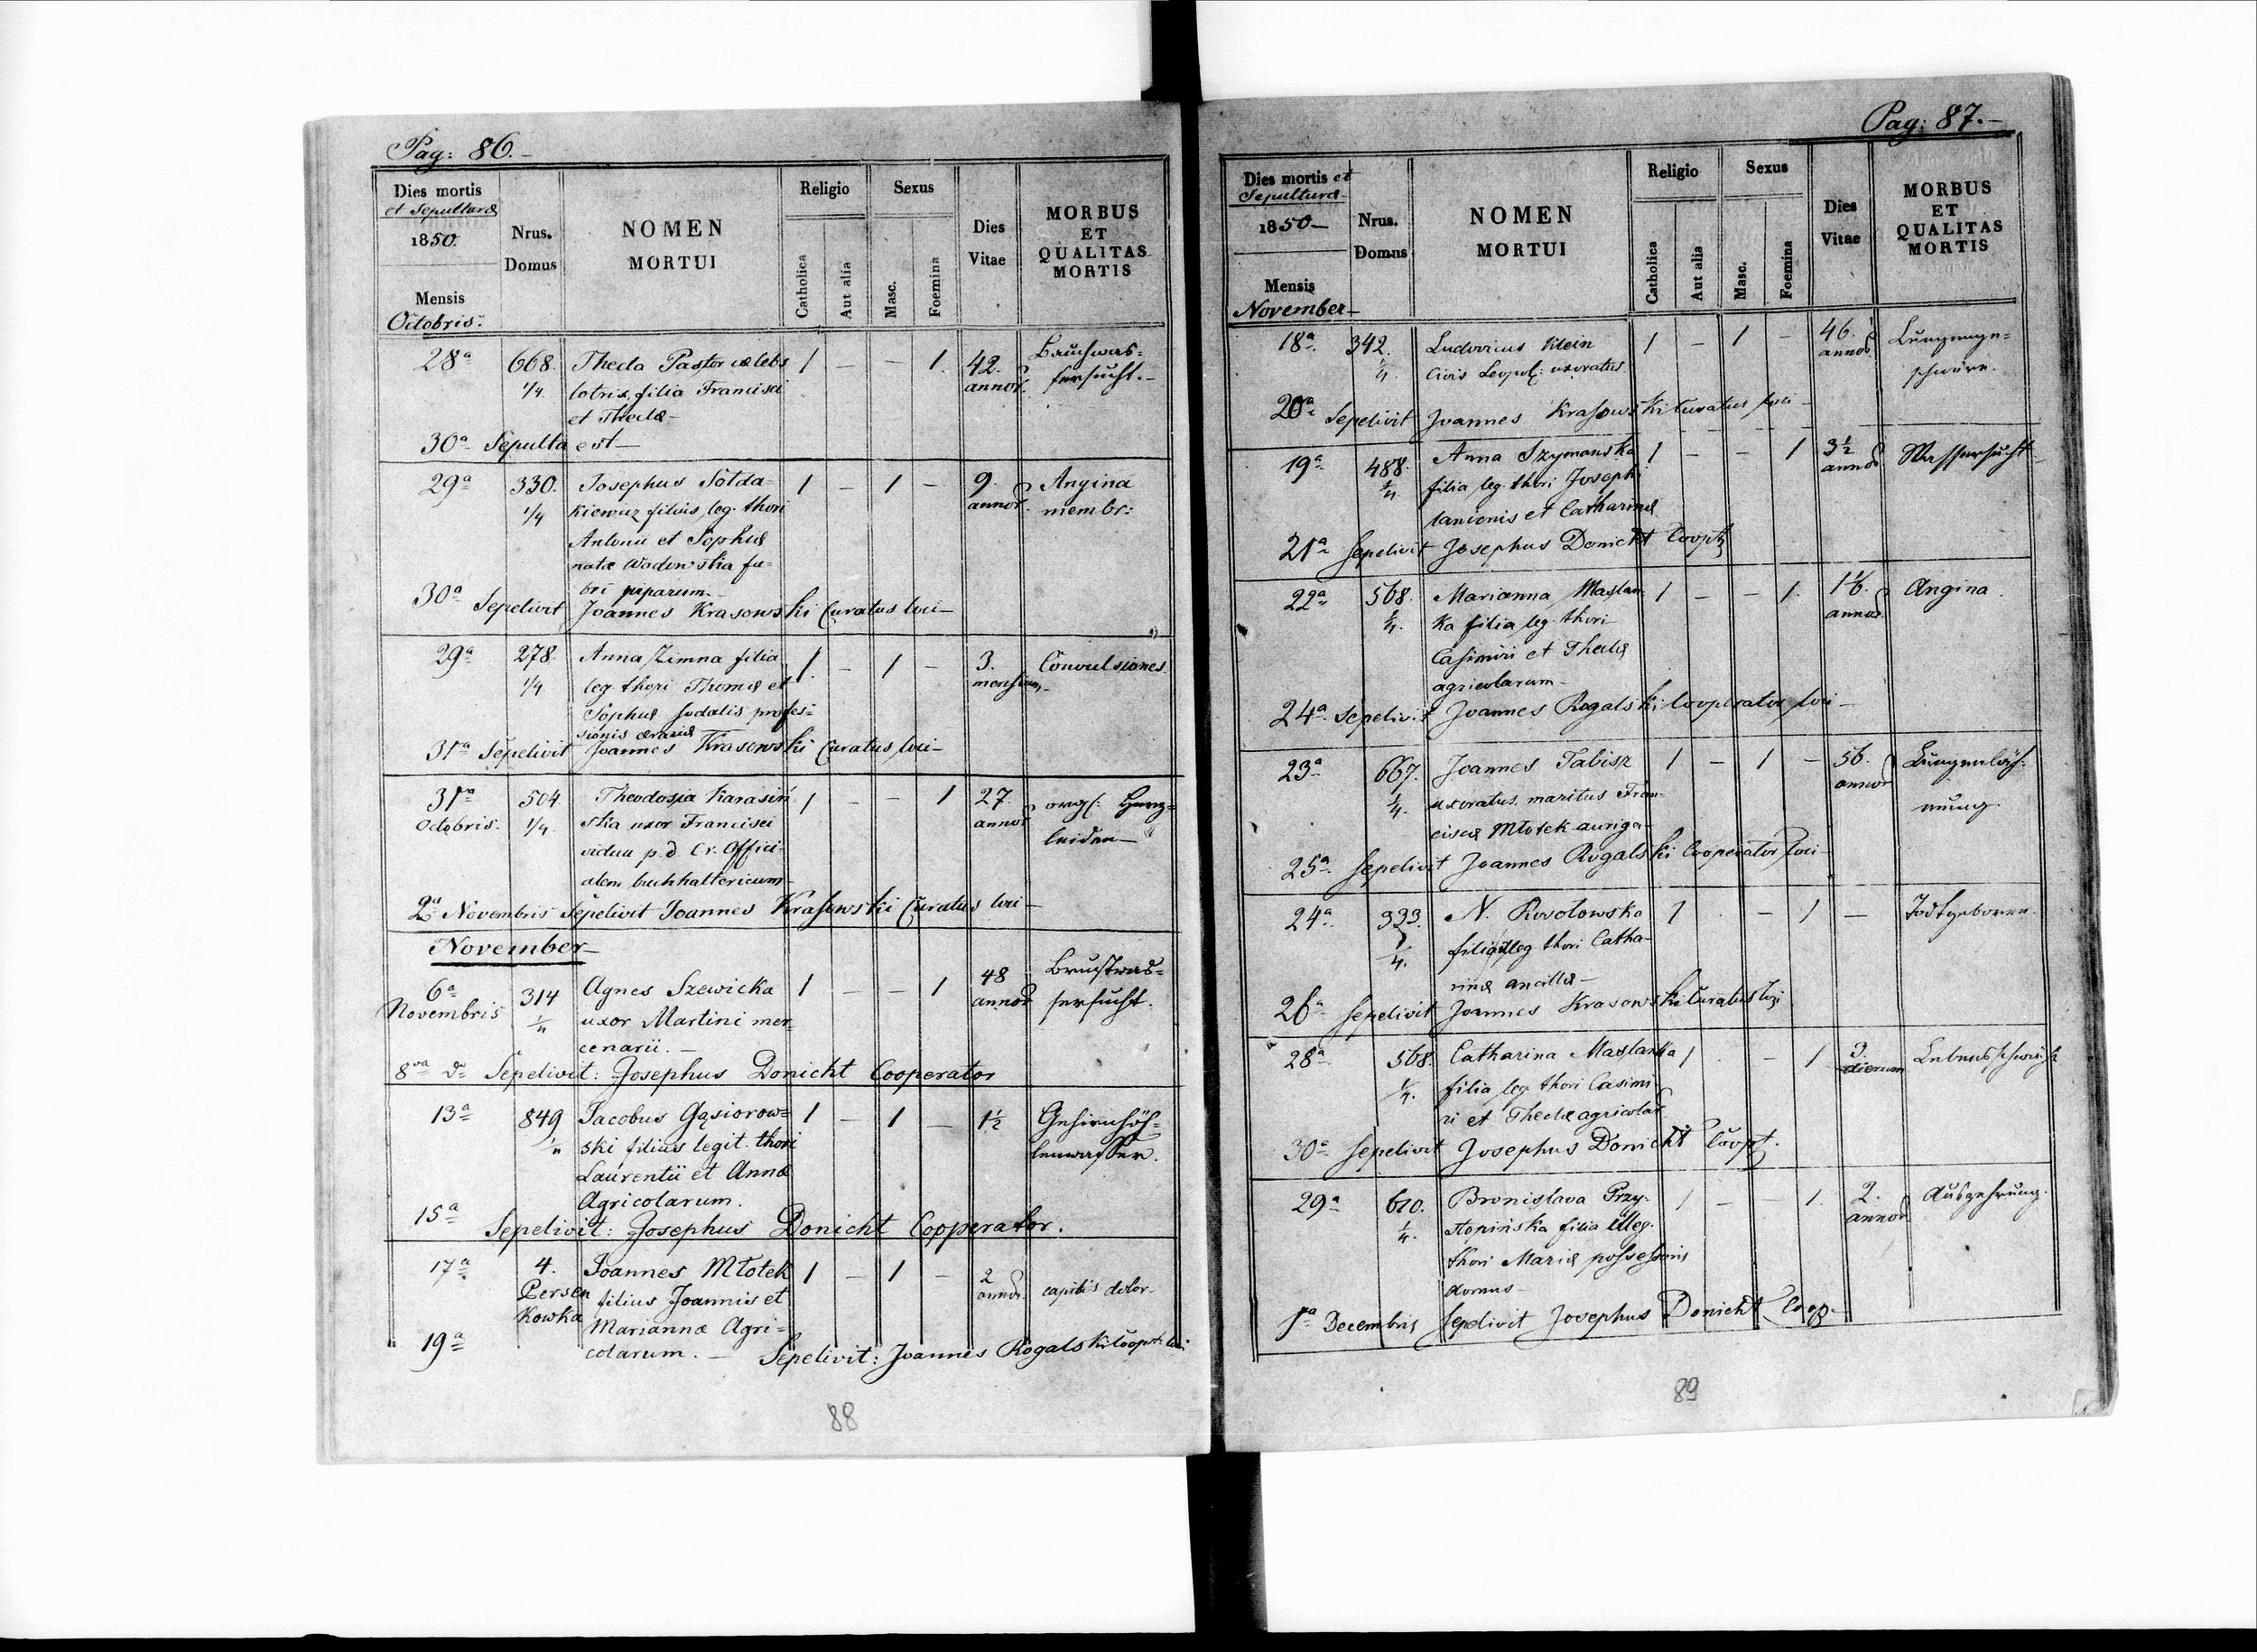 Pag: 86.-
Dies mortis et Sepulturæ 1850. Mensis Octobris.
Nrus. Domus
NOMEN MORTUI
Religio
Catholica
Aut alia
Sexus
Masc.
Foemina
Dies Vitae
MORBUS ET QUALITAS MORTIS
28ª 668. Thecla Pastor cælebs 1 — — 1. 42. Bauchwas=
1/4 lotrix, filia Francisci annor. sersucht.-
et Theclæ-
30ª Sepulta est-
29ª 330. Josephus Solda= 1 — 1 — 9. Angina
1/4 kiewicz filius leg. thori annor. membr:
Antonii et Sophiæ
natæ Wodowska fa=
bri piparum.-
30ª Sepelivit Joannes Krasowski Curatus loci-
29ª 278. Anna Zimna filia 1. — 1 — 3. Convulsiones
1/4 leg. thori Thomæ et mensium-
Sophiæ sodalis profes=
sionis ærariæ
31ª Sepelivit Joannes Krasowski Curatus loci-
31ª 504. Theodosia Karasiń 1 — — 1 27. org: Herz=
Octobris. 1/4 ska uxor Francisci annor leiden-
viduu p. d. Cr. Offici=
alem buchhaltericum-
2ª Novembris Sepelivit Joannes Krasowski Curatus loci-
November-
6ª 314 Agnes Szewicka 1 — — 1 48 Brustwas=
Novembris uxor Martini mer annor sersucht.
cenarii.-
8va d- Sepelivit: Josephus Donicht Cooperator
13ª 849 Jacobus Gąsiorow= 1 — 1 — 1½ Gehirnhöh=
ski filius legit. thori lenwasser.
Laurentii et Annæ
Agricolarum.
15ª Sepelivit: Josephus Donicht Copperator.
17ª 4. Joannes Młotek 1 — 1 — 2 capitis dolor-
Persen filius Joannis et annor.
kowka Mariannæ Agri=
19ª colarum.- Sepelivit: Joannes Rogalski Coopt: loci
88
Pag: 87.-
Dies mortis et Sepulturæ 1850- Mensis November-
Nrus. Domus
NOMEN MORTUI
Religio
Catholica
Aut alia
Sexus
Masc.
Foemina
Dies Vitae
MORBUS ET QUALITAS MORTIS
18ª 342. Ludovicus Klein 1 — 1 — 46. Lungenge=
1/4. Civis Leopol: uxoratus annor schwüre.
20ª Sepelivit Joannes Krasowski Curatus loci-
19ª 488. Anna Szymanska 1 — — 1 3½ Wassersucht-
1/4. filia leg. thori Josephi annor
lanionis et Catharinæ
21ª Sepelivit Josephus Donicht Coopt
22ª 568. Marianna Maslan 1 — — 1. Angina.
1/4. ka filia leg. thori annor
Casimiri et Theclæ
agricolarum-
24ª Sepelivit Joannes Rogalski Cooperator loci-
23ª 667. Joannes Tabisz 1 — 1 — 56. Lungenläh=
1/4. uxoratus maritus Fran- annor mung.
ciscæ Młotek auriga-
25ª Sepelivit Joannes Rogalski Cooperator loci-
24ª 333. N. Rosolowska 1 . — 1 — Todtgeboren.
1/4. filia illeg thori Catha-
rinæ ancillæ-
26ª Sepelivit Joannes Krasowski Curatus loci
28ª 568. Catharina Maslanka 1 . — 1 3. Lebensschwäche
1/4. filia leg. thori Casimi- dierum
ri et Theclæ agricolar.
30ª Sepelivit Josephus Donicht Coopt.
29ª 610. Bronislava Przy- 1 — — 1. 2. Auszehrung.
1/4. stopińska filia illeg. annor
thori Mariæ possessoris
domus-
1ª Decembris Sepelivit Josephus Donicht Coop-
89